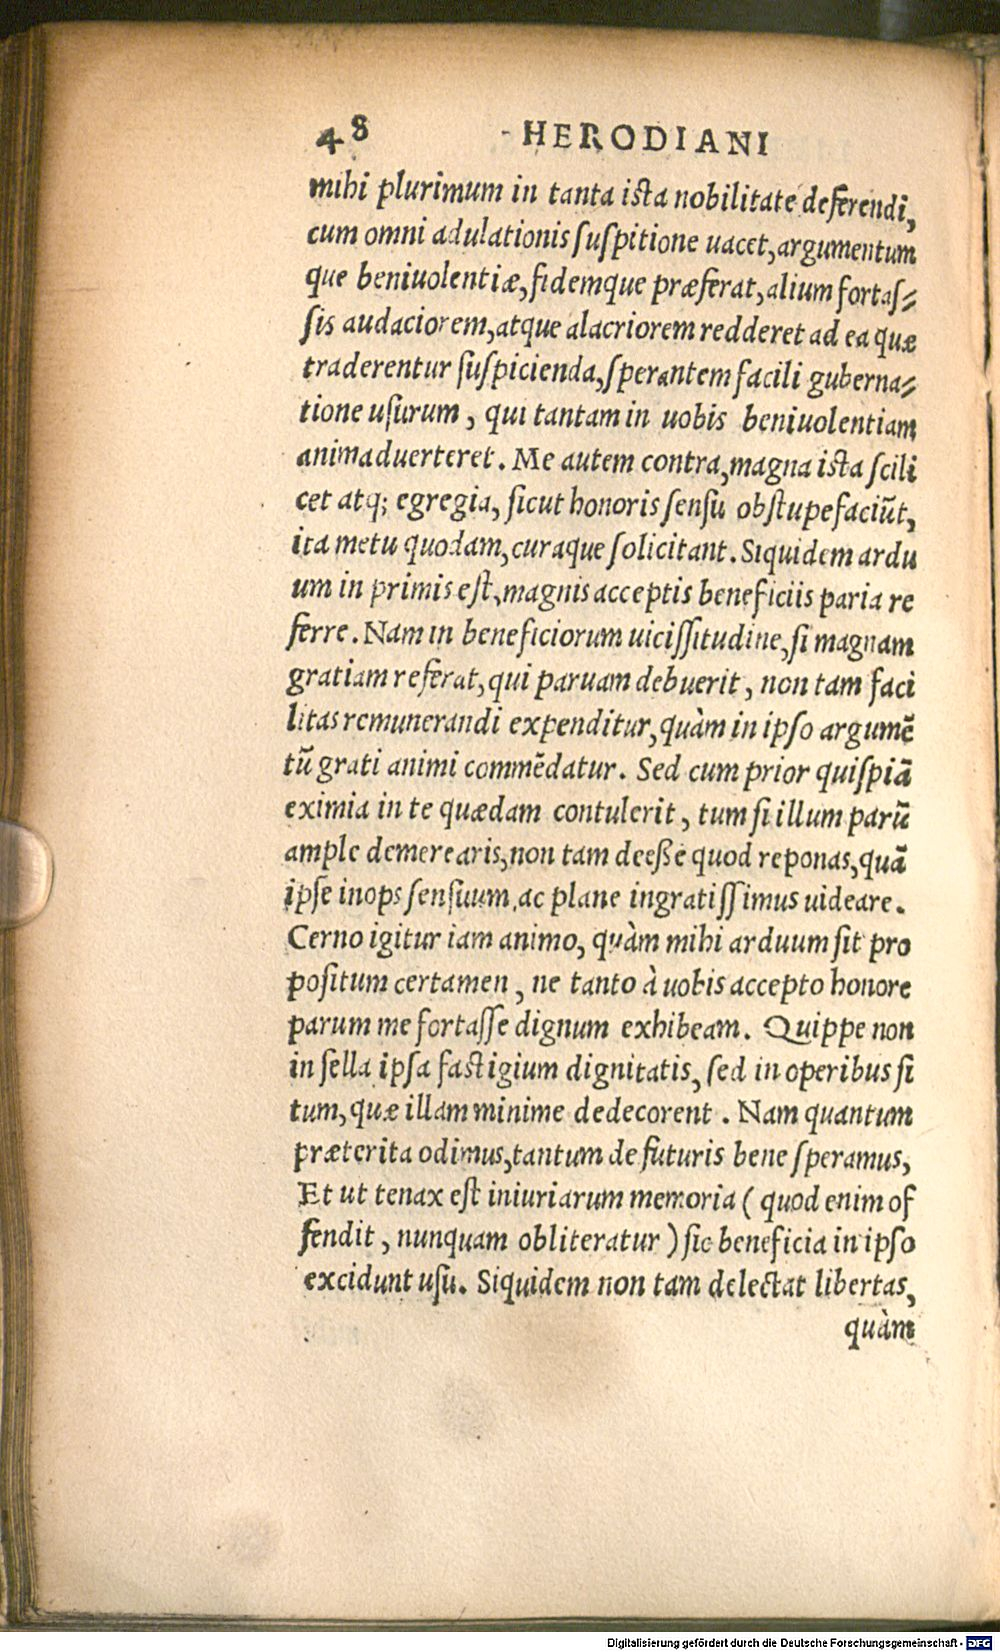 48 HERODIANI
mihi plurimum in tanta ista nobilitate deferendi,
cum omni adulationis suspitione uacet, argumentum
que beniuolentiæ, fidemque præferat, alium fortas⸗
sis audaciorem, atque alacriorem redderet ad ea quæ
traderentur suspicienda, sperantem facili guberna⸗
tione usurum, qui tantam in uobis beniuolentiam
animaduerteret. Me autem contra, magna ista scili
cet atq; egregia, sicut honoris sensu obstupefaciũt,
ita metu quodam, curaque solicitant. Siquidem ardu
um in primis est, magnis acceptis beneficiis paria re
ferre. Nam in beneficiorum uicissitudine, si magnam
gratiam referat, qui paruam debuerit, non tam faci
litas remunerandi expenditur, quàm in ipso argumẽ
tũ grati animi commẽdatur. Sed cum prior quispiã
eximia in te quædam contulerit, tum si illum parũ
ample demerearis, non tam deeße quod reponas, quã
ipse inops sensuum, ac plane ingratissimus uideare.
Cerno igitur iam animo, quàm mihi arduum sit pro
positum certamen, ne tanto à uobis accepto honore
parum me fortasse dignum exhibeam. Quippe non
in sella ipsa fastigium dignitatis, sed in operibus si
tum, quæ illam minime dedecorent. Nam quantum
præterita odimus, tantum de futuris bene speramus,
Et ut tenax est iniuriarum memoria (quod enim of
fendit, nunquam obliteratur) sic beneficia in ipso
excidunt usu. Siquidem non tam delectat libertas,
quàm
Digitalisierung gefördert durch die Deutsche Forschungsgemeinschaft - DFG